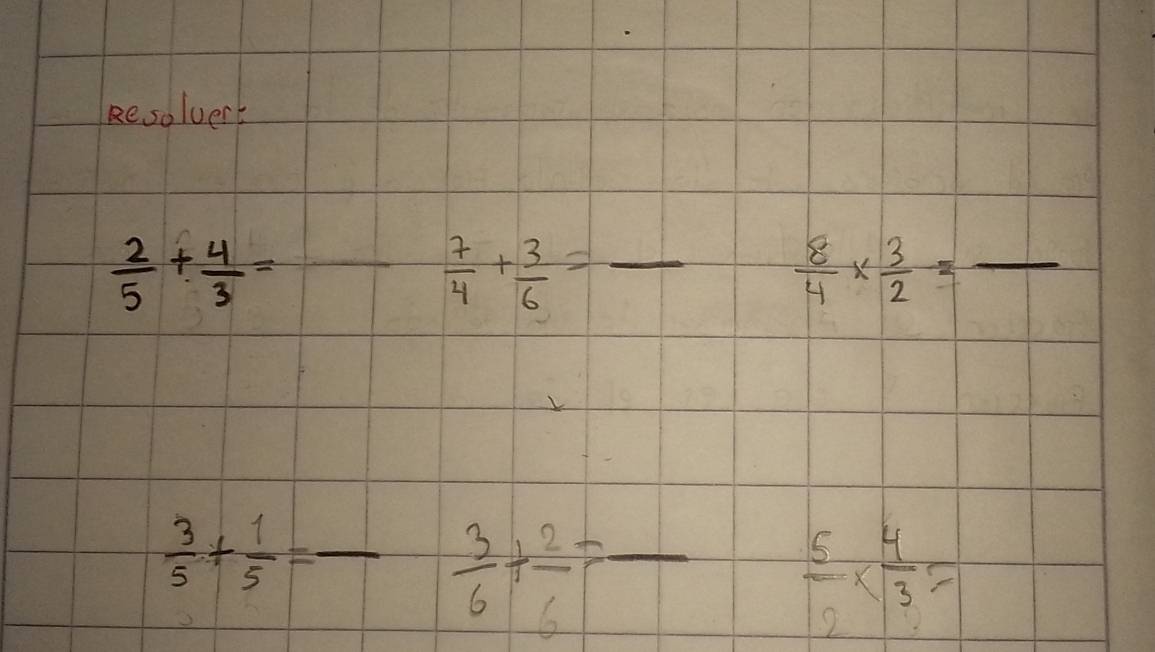 Resolver:
2/5 + 4/3 = 7/4 + 3/6 = 8/4 x 3/2 =
3/5 + 1/5 = 3/6 + 2/6 = 5/2 x 4/3 =